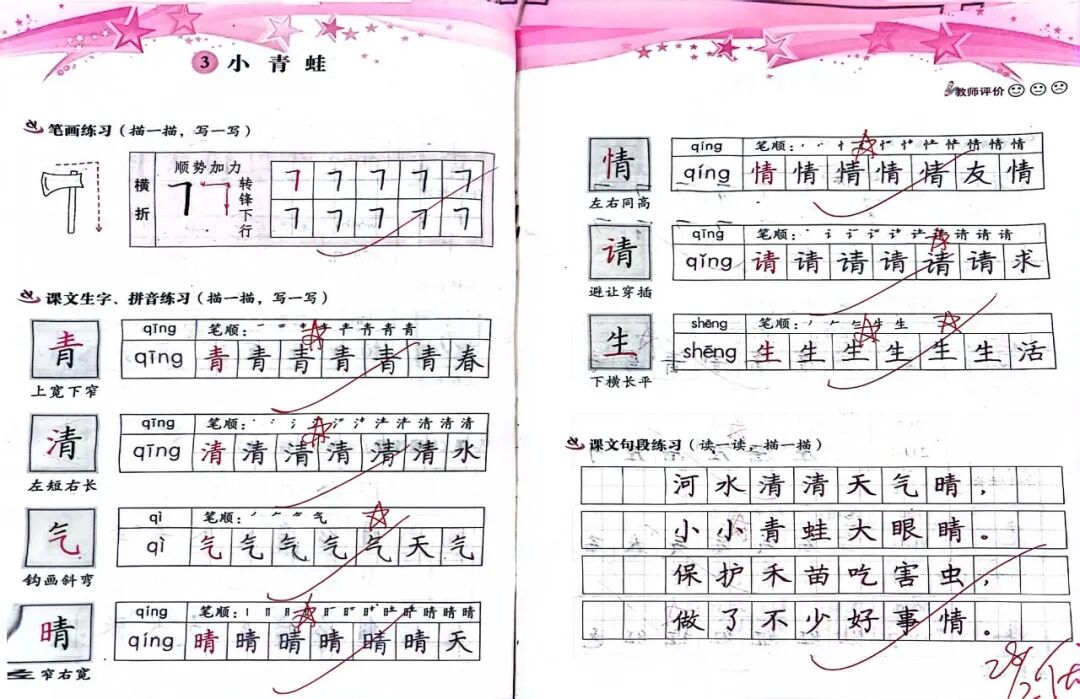 3 小青蛙
笔画练习（描一描，写一写）
横折
顺势加力
转锋下行
课文生字、拼音练习（描一描，写一写）
青
上宽下窄
qīng 笔顺： 青 青 青
qīng 青 青 青 青 青 青 春
清
左短右长
qīng 笔顺： 清 清 清
qīng 清 清 清 清 清 清 水
气
钩画斜弯
qì 笔顺： 气
qì 气 气 气 气 气 天 气
晴
窄右宽
qíng 笔顺： 晴 晴 晴
qíng 晴 晴 晴 晴 晴 晴 天
教师评价
情
左右同高
qíng 笔顺： 情 情 情
qíng 情 情 情 情 情 友 情
请
避让穿插
qǐng 笔顺： 请 请 请
qǐng 请 请 请 请 请 请 求
生
下横长平
shēng 笔顺： 生 生
shēng 生 生 生 生 生 生 活
课文句段练习（读一读，描一描）
河水清清天气晴，
小小青蛙大眼睛。
保护禾苗吃害虫，
做了不少好事情。